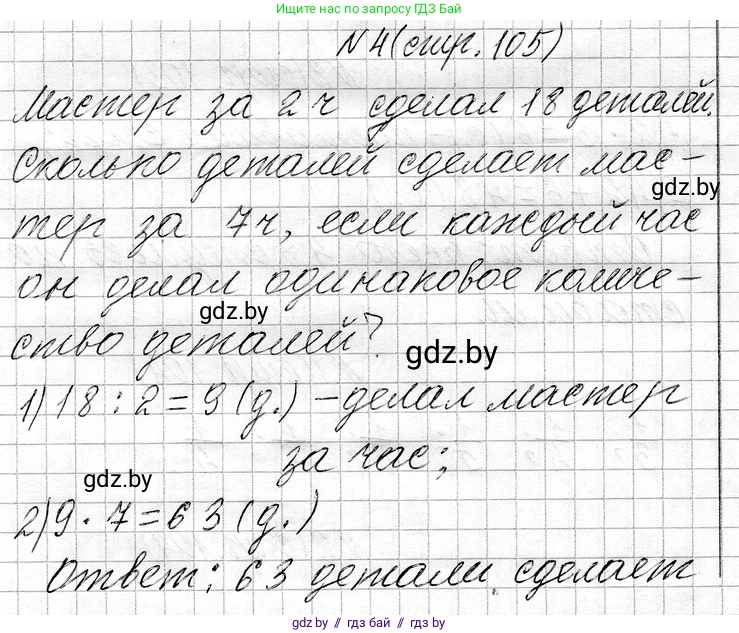 Ищите нас в поиске по запросу ГДЗ Бай
N 4 (стр. 105)
Мастер за 2 ч сделал 18 деталей.
Сколько деталей сделает мас-
gdz.by
тер за 7 ч, если каждый час
он делал одинаковое количе-
gdz.by
ство деталей?
gdz.by
1) 18 : 2 = 9 (д.) - делал мастер
за час;
gdz.by
2) 9 · 7 = 63 (д.)
Ответ: 63 детали сделает
gdz.by // гдз бай // гдз by